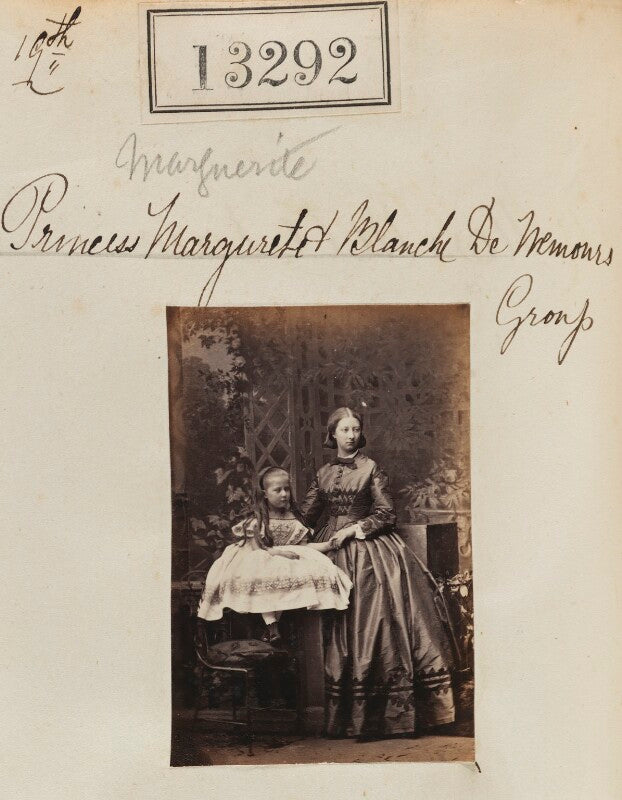 19th
13292
Marguerite
Princess Margurete & Blanche De Nemours
Group